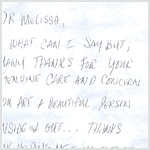 DR MELISSA,
WHAT CAN I SAY BUT,
MANY THANKS FOR YOUR
GENUINE CARE AND CONCERN
YOU ARE A BEAUTIFUL PERSON
INSIDE & OUT... THANKS